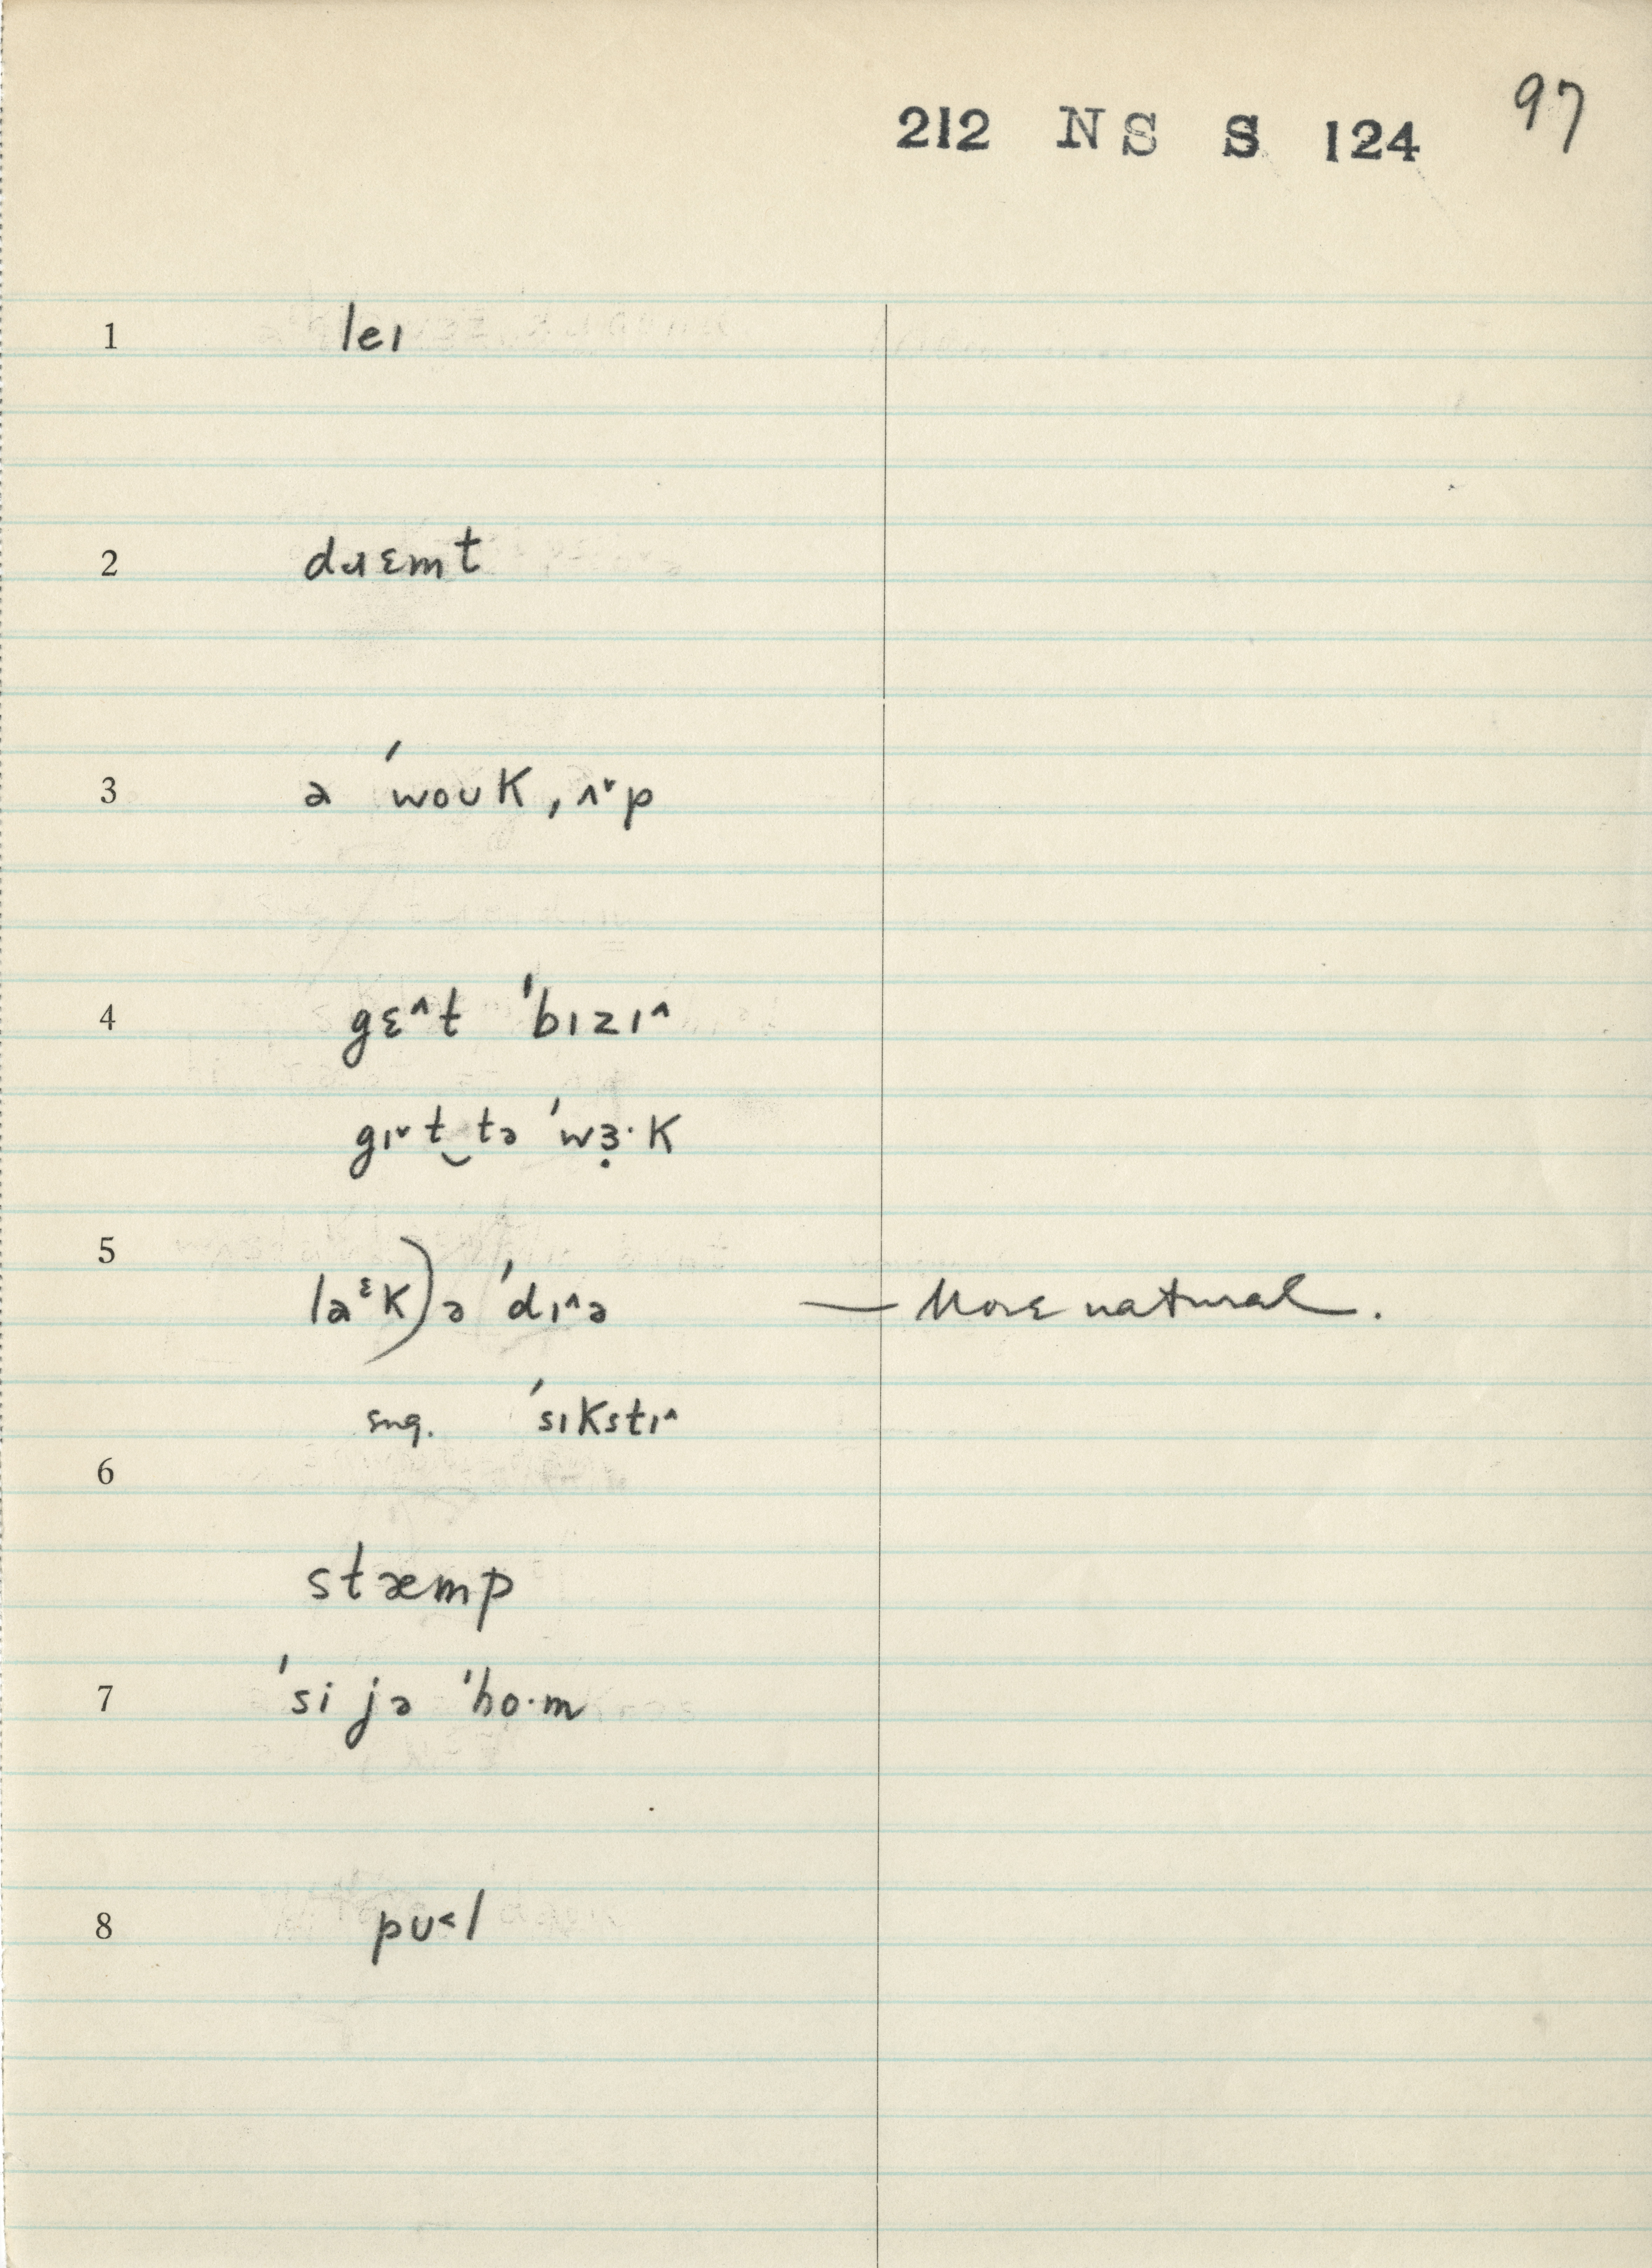 97
212 NS S 124
1 leɪ
2 dɹɛmt
3 ə ˈwoʊk, ʌ˅p
4 gɛ^t ˈbɪzɪ^
gɪ˅t‿tə ˈwɜ̣·k
5
laᵋk) ə ˈdɪ^ə — More natural.
sug. ˈsɪkstɪ^
6
stæmp
7 ˈsi jə ˈho·m
8 pʊ˂l